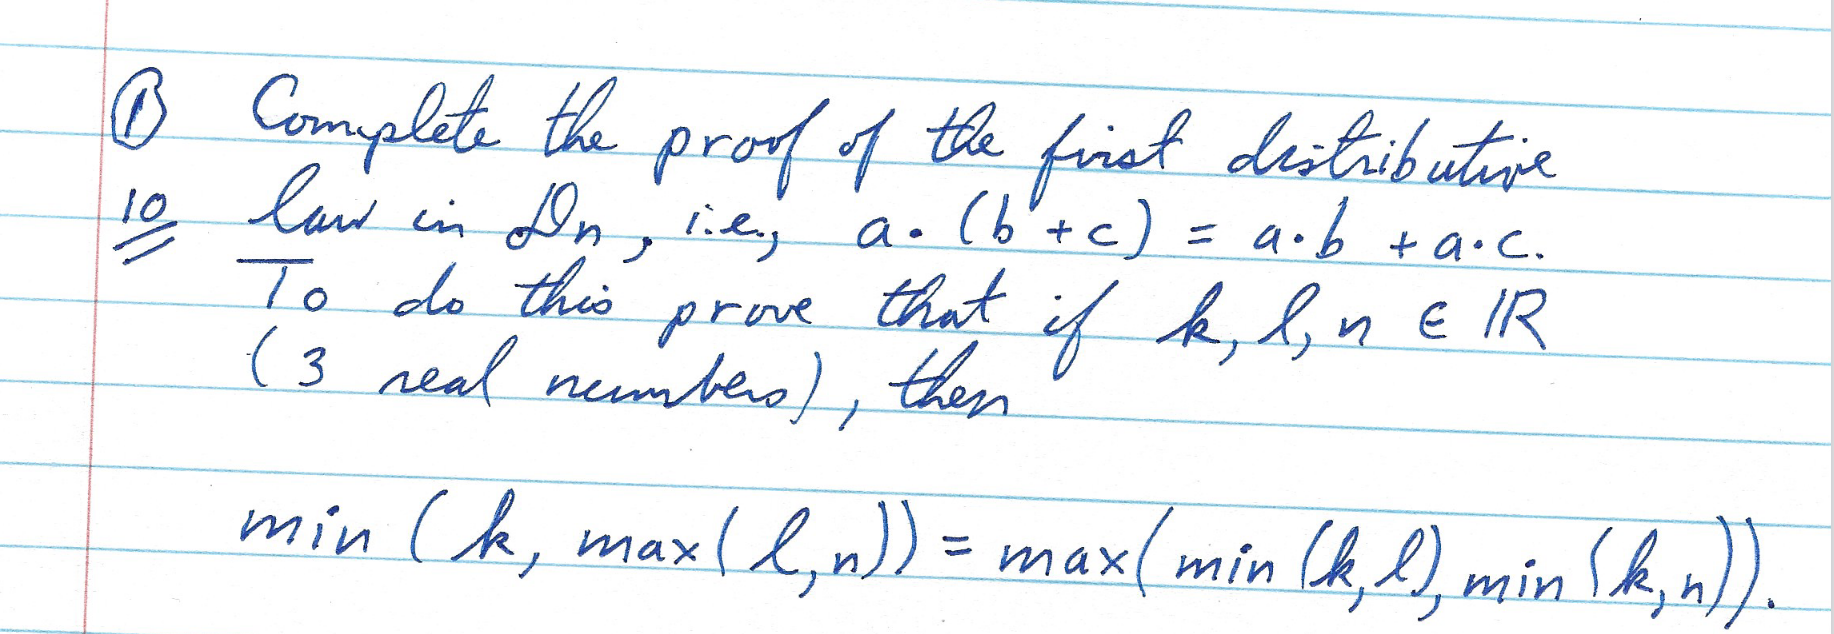 ① Complete the proof of the first distributive
10 law in Dn, i.e., a·(b+c) = a·b + a·c.
To do this prove that if k, l, n ∈ ℝ
(3 real numbers), then
min (k, max(l,n)) = max(min(k,l), min(k,n)).